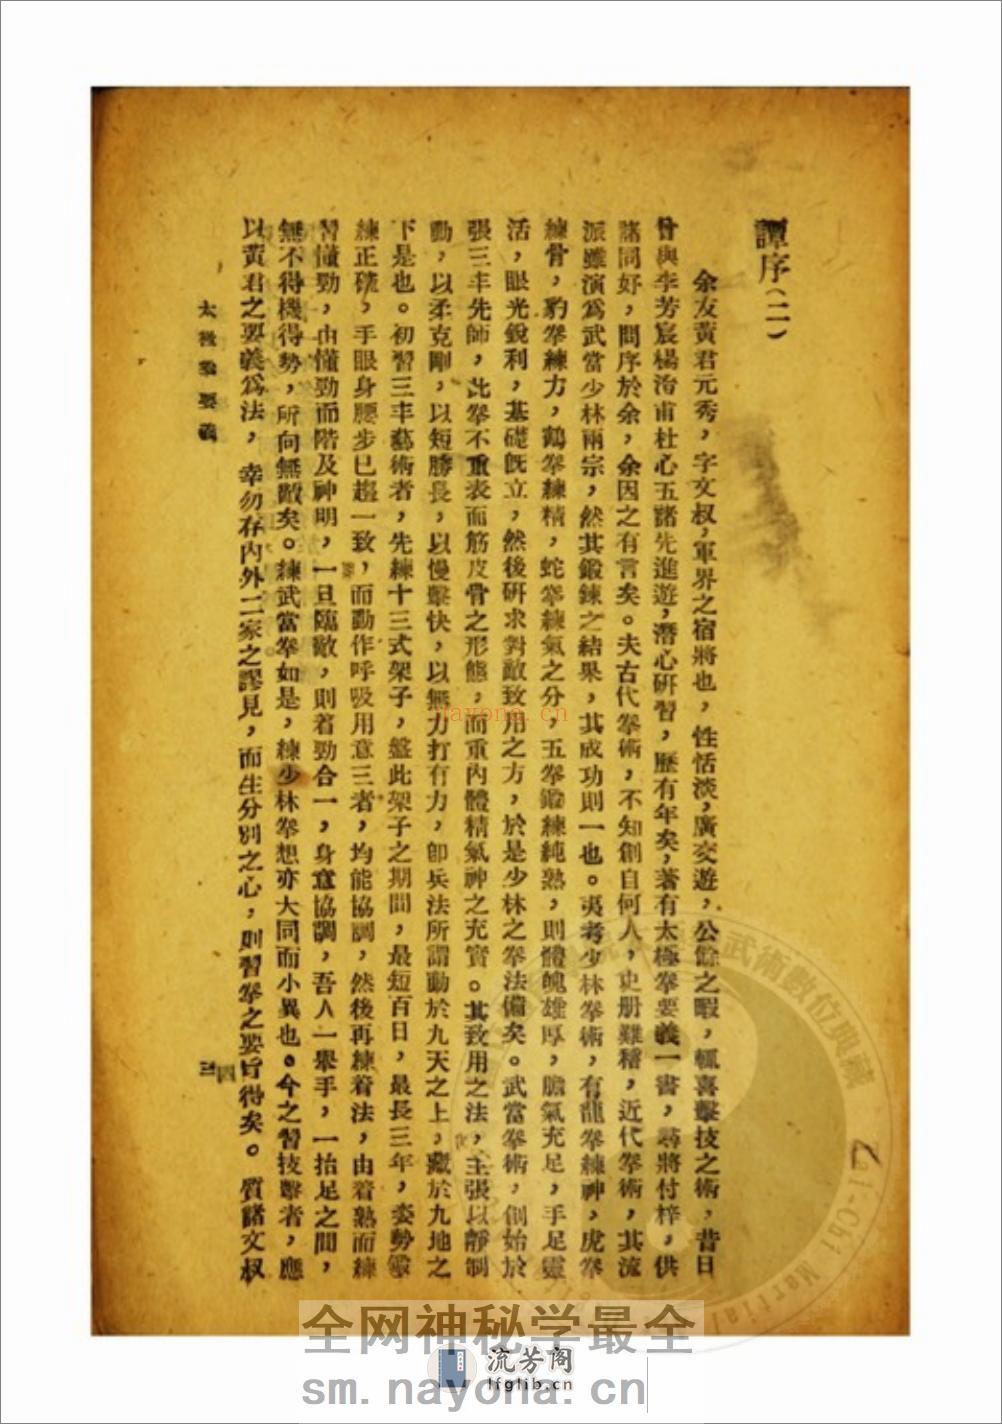 譚序(二)
余友黃君元秀，字文叔，軍界之宿將也，性恬淡，廣交遊，公餘之暇，輒喜擊技之術，昔日
曾與李芳宸楊澄甫杜心五諸先進遊，潛心研習，歷有年矣，著有太極拳要義一書，尋將付梓，供
諸同好，問序於余，余因之有言矣。夫古代拳術，不知創自何人，史册難稽，近代拳術，其流
派雖演爲武當少林兩宗，然其鍛鍊之結果，其成功則一也。夷考少林拳術，有龍拳練神，虎拳
練骨，豹拳練力，鶴拳練精，蛇拳練氣之分，五拳鍛練純熟，則體魄雄厚，膽氣充足，手足靈
活，眼光銳利，基礎既立，然後研求對敵致用之方，於是少林之拳法備矣。武當拳術，創始於
張三丰先師，此拳不重表面筋皮骨之形態，而重內體精氣神之充實。其致用之法，主張以靜制
動，以柔克剛，以短勝長，以慢擊快，以無力打有力，卽兵法所謂動於九天之上，藏於九地之
下是也。初習三丰藝術者，先練十三式架子，盤此架子之期間，最短百日，最長三年，姿勢鍛
練正確，手眼身腰步已趨一致，而動作呼吸用意三者，均能協調，然後再練着法，由着熟而練
習懂勁，由懂勁而階及神明，一旦臨敵，則着勁合一，身意協調，吾人一舉手，一抬足之間，
無不得機得勢，所向無敵矣。練武當拳如是，練少林拳想亦大同而小異也。今之習技擊者，應
以黃君之要義爲法，幸勿存內外二家之謬見，而生分別之心，則習拳之要旨得矣。質諸文叔
太極拳要義
三
四
武術數位典藏
Tai-Chi Martial
nayona.cn
全网神秘学最全
流芳阁
lfglib.cn
sm.nayona.cn